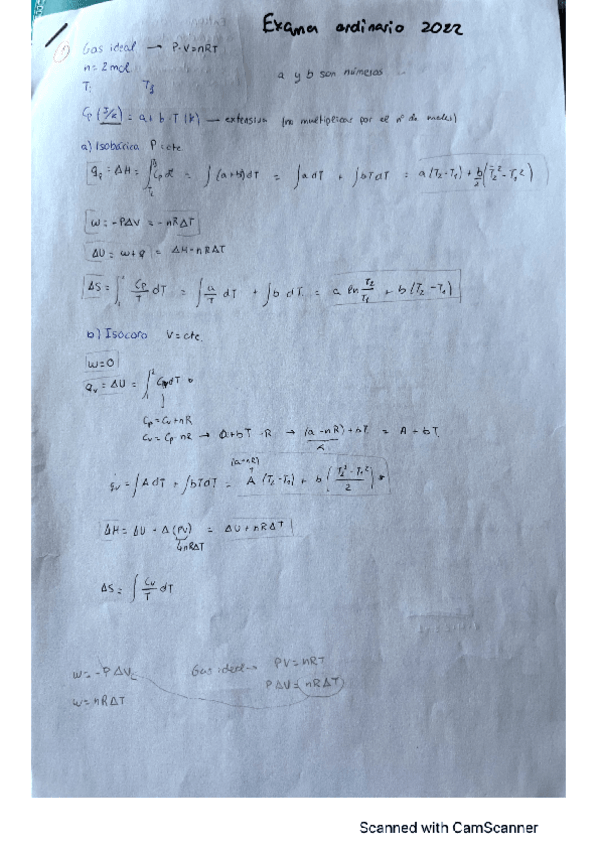 Examen ordinario 2022
1) Gas ideal → P·V=nRT
n=2 mol
a y b son números
T₁ T₂
Cp (J/K) = a+b·T(K) → extensiva (no multiplicar por el nº de moles)
a) Isobárica P=cte
q_p = ΔH = ∫ Cp dT = ∫(a+b)dT = ∫a dT + ∫bT dT = a(T₂-T₁) + b/2 (T₂²-T₁²)
w = -PΔV = -nRΔT
ΔU = w+q = ΔH-nRΔT
ΔS = ∫ Cp/T dT = ∫ a/T dT + ∫b dT = a ln T₂/T₁ + b(T₂-T₁)
b) Isócoro V=cte.
w=0
q_v = ΔU = ∫₁² Cv dT
Cp = Cv+nR
Cv = Cp-nR → a+bT-R → (a-nR)+bT = A+bT
(a-nR)
q_v = ∫A dT + ∫bT dT = A(T₂-T₁) + b (T₂²-T₁²)/2
ΔH = ΔU + Δ(PV) = ΔU+nRΔT
nRΔT
ΔS = ∫ Cv/T dT
w = -PΔV
Gas ideal → PV=nRT
PΔV = nRΔT
w = nRΔT
Scanned with CamScanner